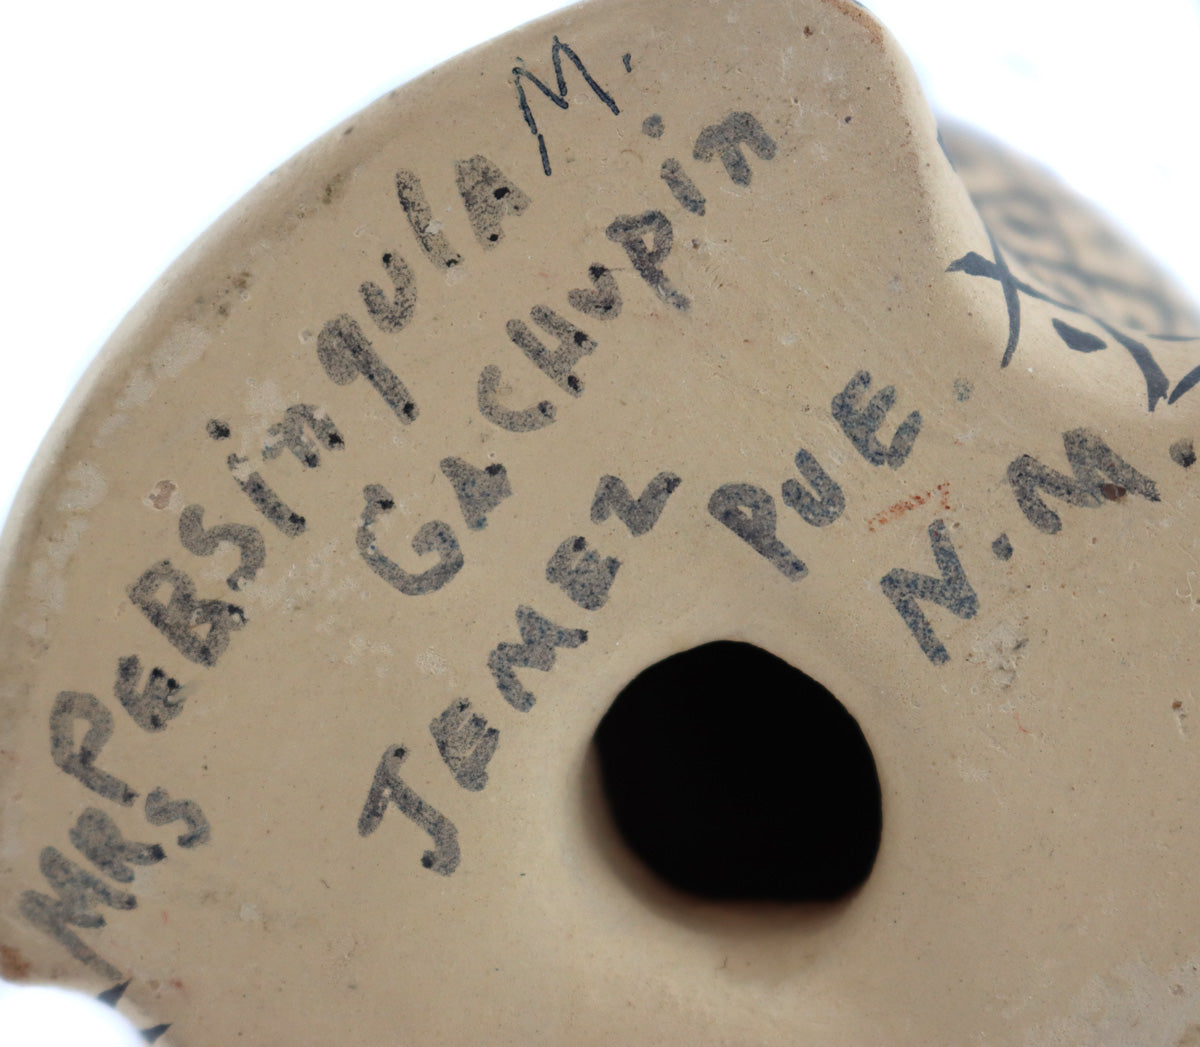 MRS PERSingulA M.
GACHUPin
JEMEZ PUE.
N.M.